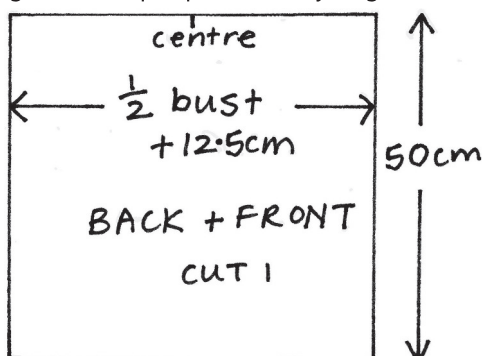 centre
½ bust
+12.5cm
50cm
BACK + FRONT
CUT 1